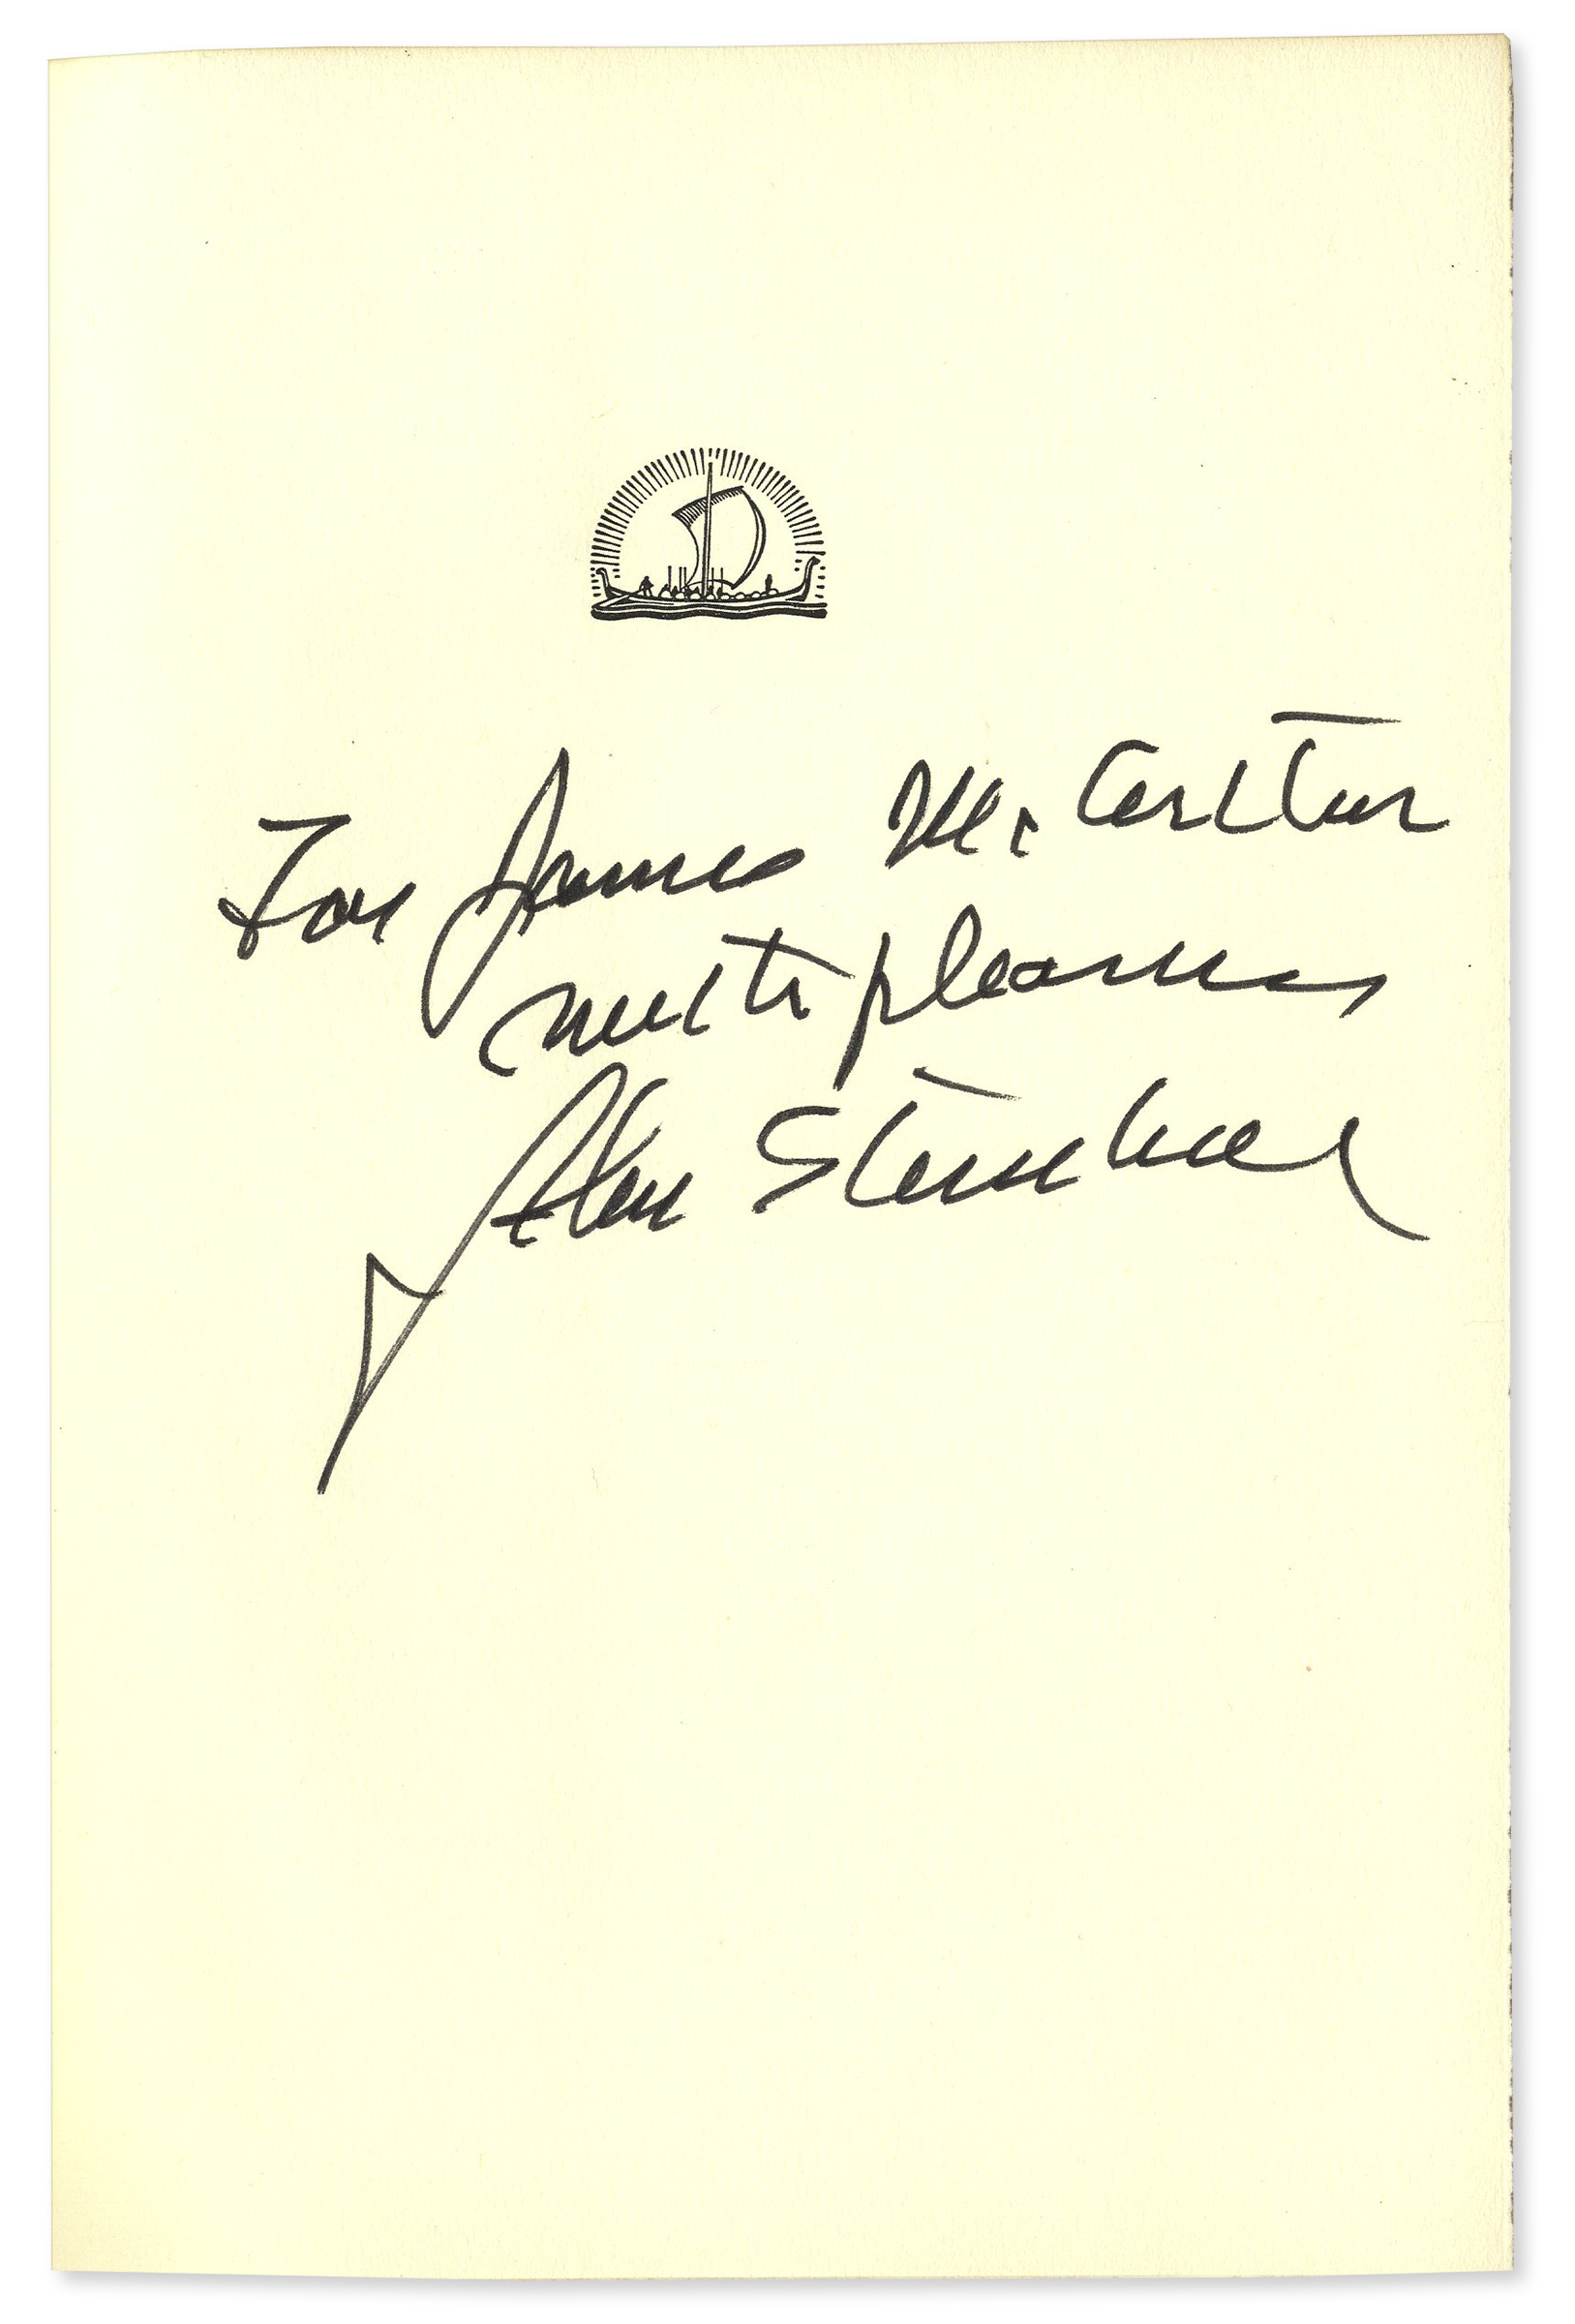 For James McCarthur
with pleasure
John Steinbeck